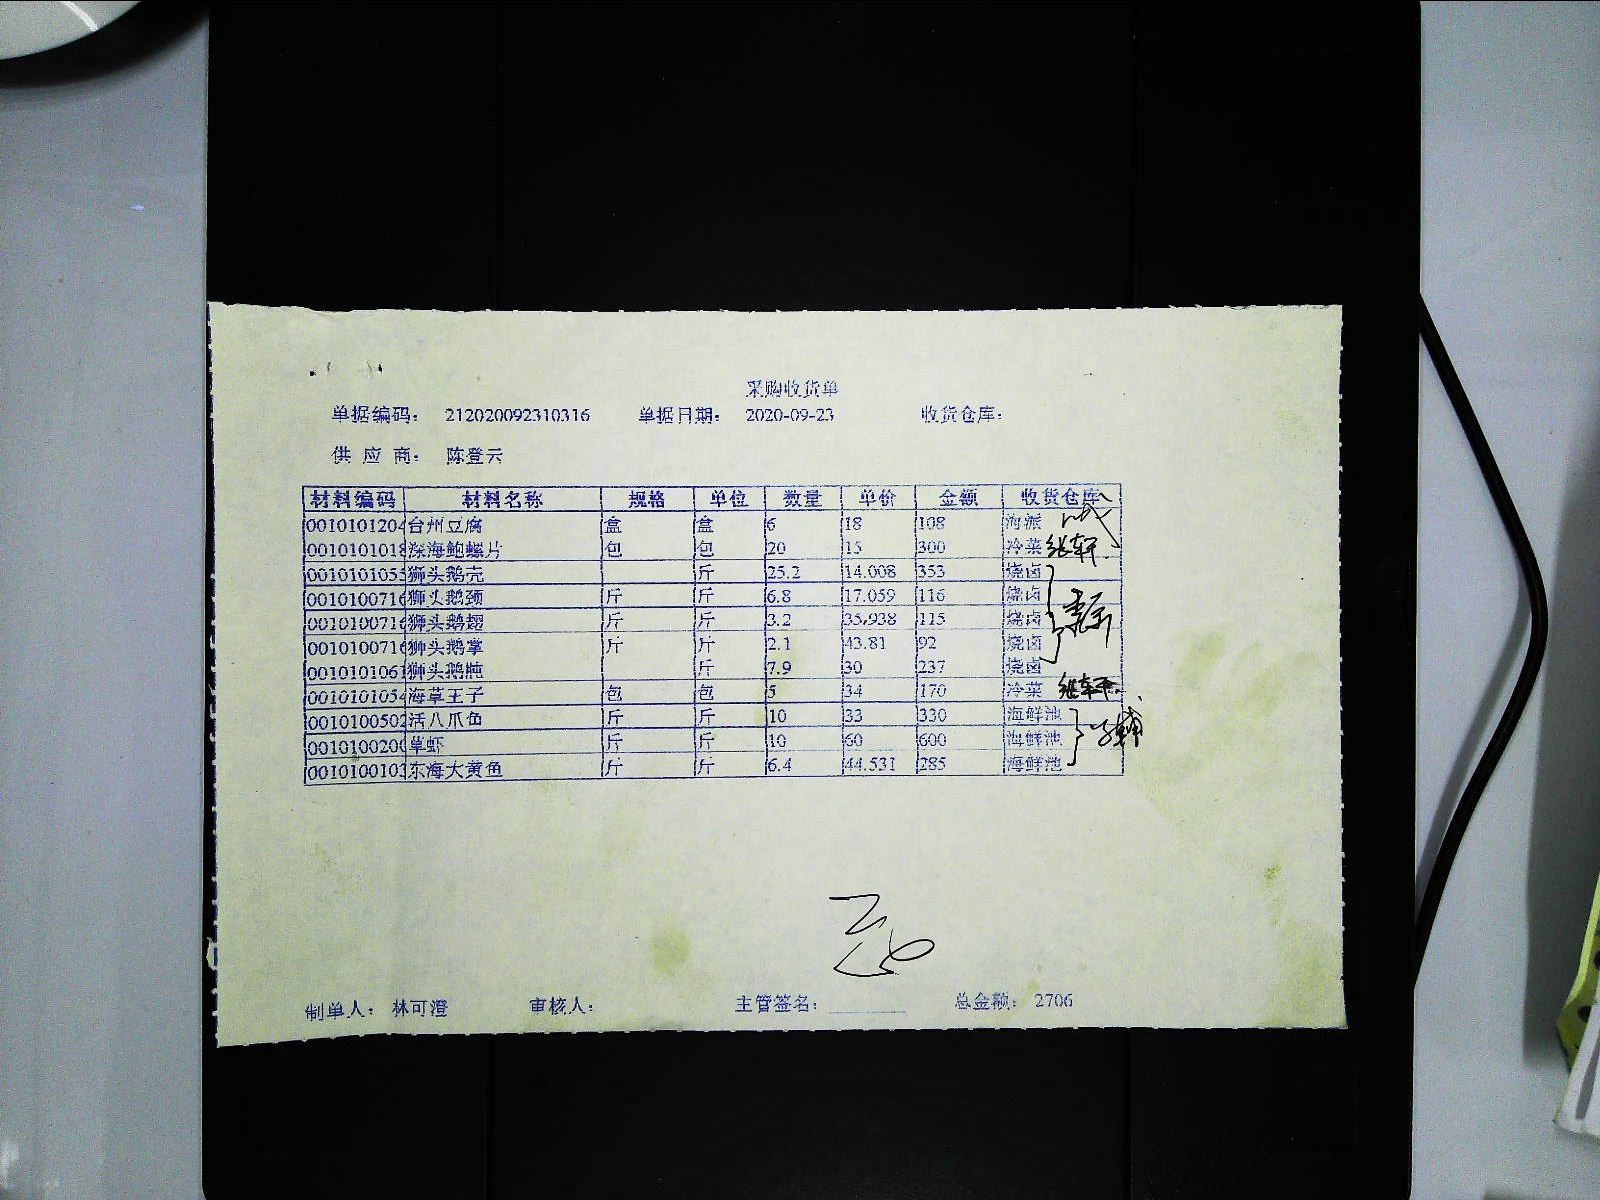 采购收货单
单据编码： 212020092310316 单据日期： 2020-09-23 收货仓库：
供 应 商： 陈登云
材料编码 材料名称 规格 单位 数量 单价 金额 收货仓库
0010101204 台州豆腐 盒 盒 6 18 108 海派
0010101018 深海鲍螺片 包 包 20 15 300 冷菜 继轩
0010101055 狮头鹅壳 斤 25.2 14.008 353 烧卤
0010100716 狮头鹅颈 斤 斤 6.8 17.059 116 烧卤
0010100716 狮头鹅翅 斤 斤 3.2 35.938 115 烧卤
0010100716 狮头鹅掌 斤 斤 2.1 43.81 92 烧卤
0010101061 狮头鹅肫 斤 7.9 30 237 烧卤
0010101054 海草王子 包 包 5 34 170 冷菜 继轩
0010100502 活八爪鱼 斤 斤 10 33 330 海鲜池
0010100200 草虾 斤 斤 10 60 600 海鲜池
0010100103 东海大黄鱼 斤 斤 6.4 44.531 285 海鲜池
制单人： 林可澄 审核人： 主管签名： 总金额： 2706